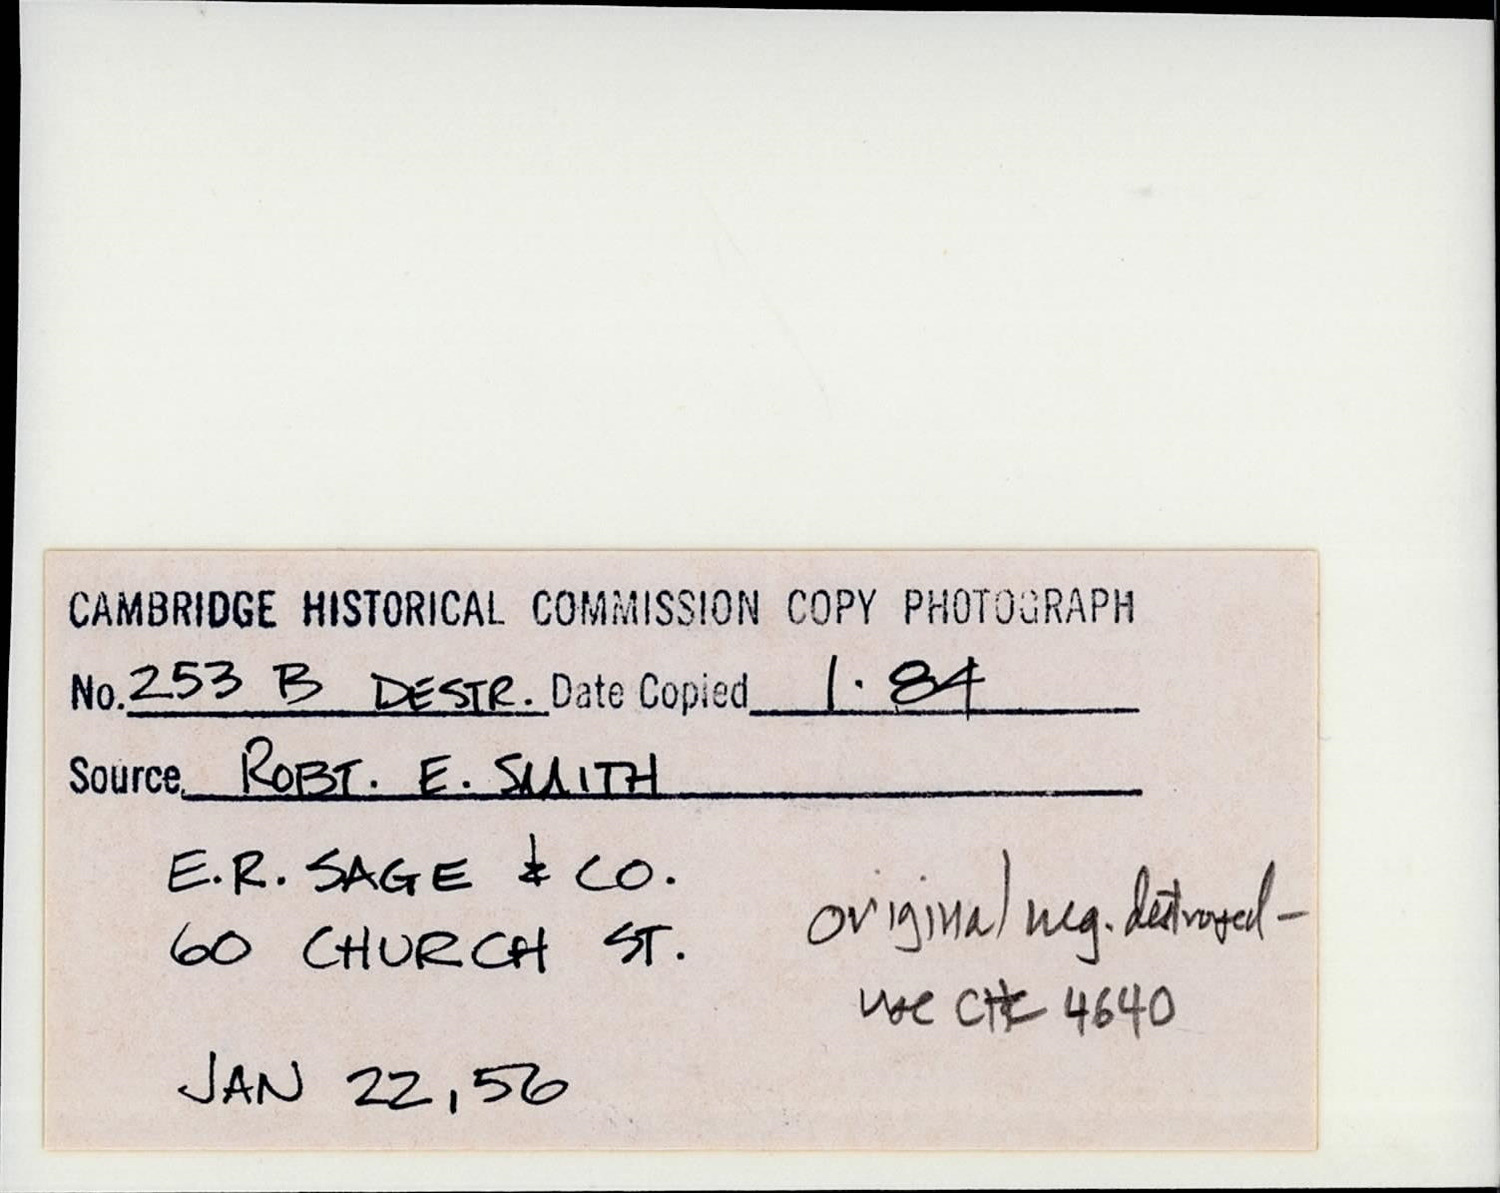 CAMBRIDGE HISTORICAL COMMISSION COPY PHOTOGRAPH
No. 253 B DESTR. Date Copied 1.84
Source ROBT. E. SMITH
E.R. SAGE & CO.
60 CHURCH ST.
original neg. destroyed –
use CHC 4640
JAN 22, 56